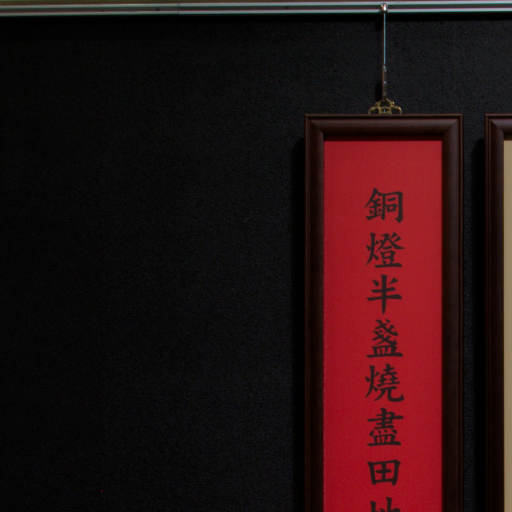 銅燈半盞燒盡田地